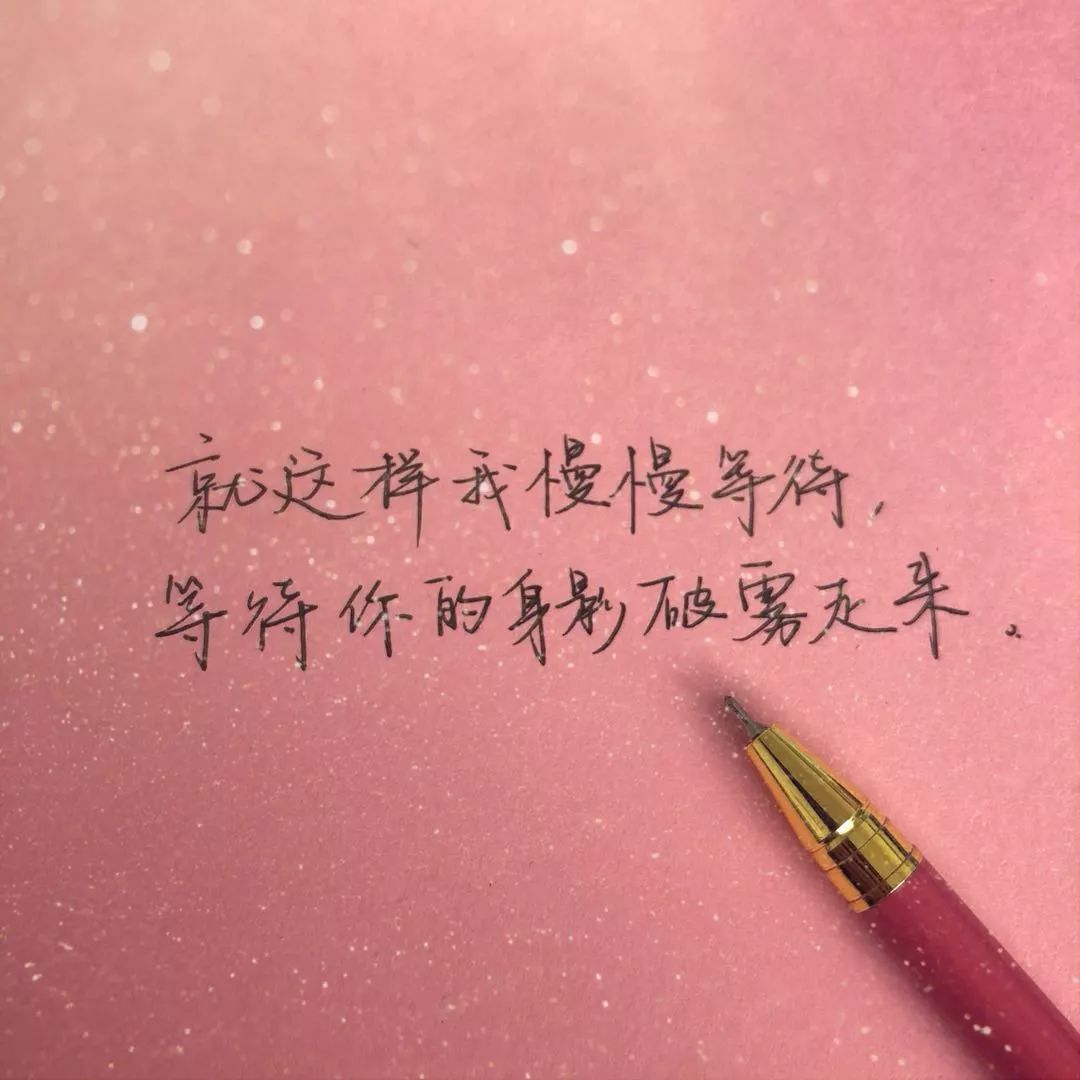 就这样我慢慢等待，
等待你的身影破雾走来。